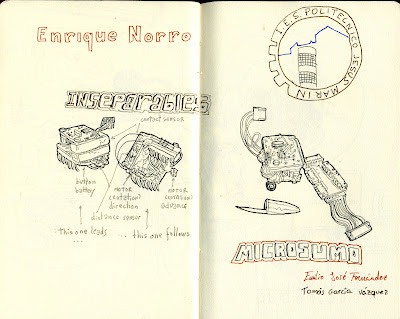 Enrique Norro
INSEPARABLES
contact sensor
button
battery
motor
(rotation)
direction
motor
(rotation)
advance
distance sensor
:this one leads
...
... this one follows
I.E.S. POLITECNICO JESUS MARIN
MICROSUMO
Emilio José Fernández
Tomás García Vázquez